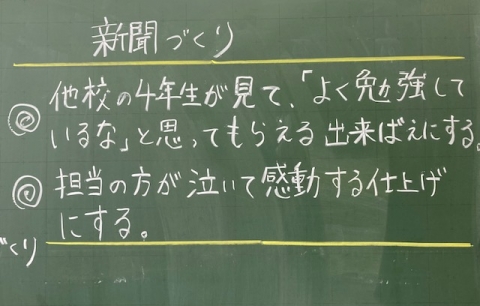 新聞づくり
◎ 他校の4年生が見て、「よく勉強して
いるな」と思ってもらえる出来ばえにする。
◎ 担当の方が泣いて感動する仕上げ
にする。
づくり